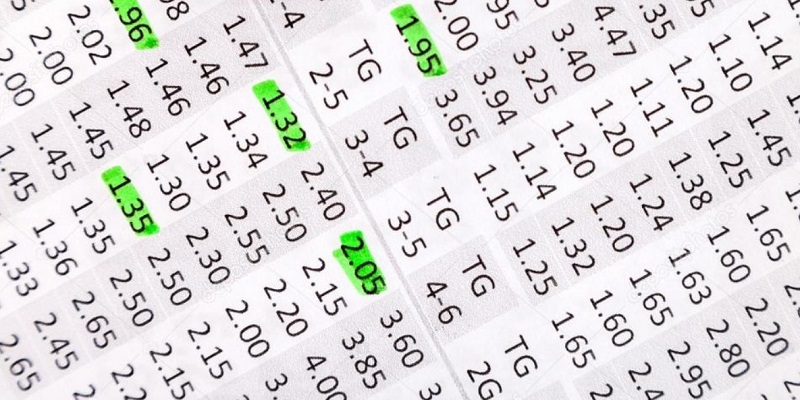 1.14
1.10 1.45
1.20 1.25 1.65 2.20
4.47 1.11 1.38 1.60 2.80
3.40 1.20 1.24 1.63 2.95
3.25 1.20 1.20 1.65
2.00 3.94 1.14 1.32 1.60
1.95 3.65 1.15 1.25 1.65
TG TG TG TG TG
2-5 3-4 3-5 4-6 2G
1.47 1.32 2.40 2.05 3.60
1.46 1.34 2.50 2.15 3.85
1.46 1.35 2.55 2.20 4.00
1.48 1.30 2.30 2.00
2.02 1.45 1.35 2.50 2.15
2.00 1.45 1.35 2.50 2.15
2.00 1.45 1.36 2.65
1.33 2.45
2.65